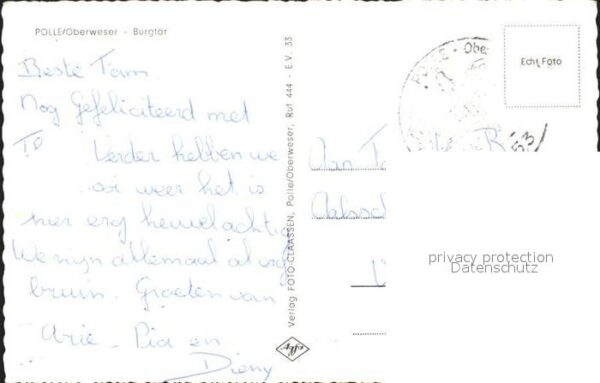 POLLE/Oberweser - Burgtor
Beste Tam
Nog Gefeliciteerd met
Verder hebben we
weer het is
hier erg heuvelachtig
We zijn allemaal al erg
bruin. Groeten van
Arie - Pia en
Dieny
Verlag FOTO-CLAASSEN, Polle/Oberweser, Ruf 444 - E.V. 33
Obe
Echt Foto
Aan
privacy protection
Datenschutz